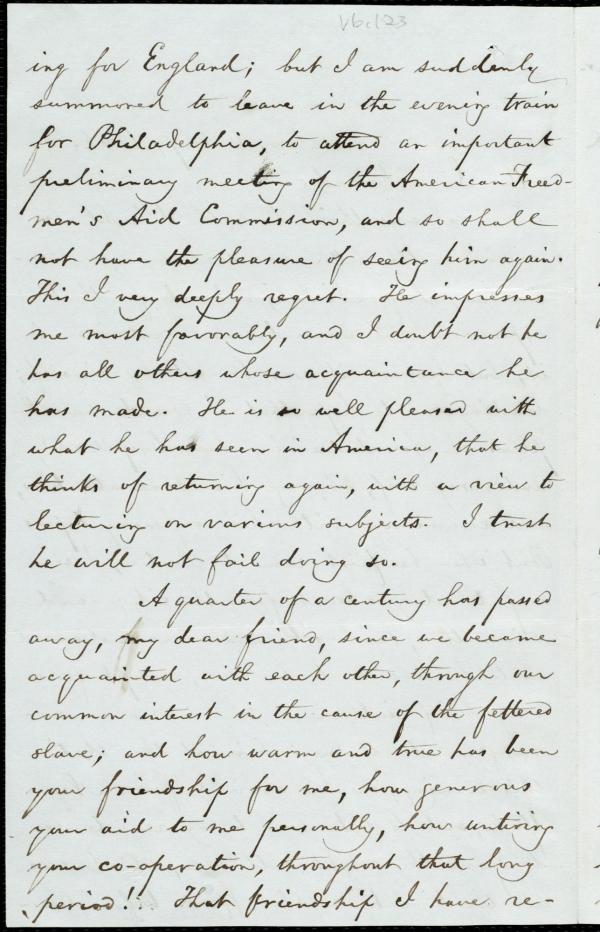 V6.123
ing for England; but I am suddenly
summoned to leave in the evening train
for Philadelphia, to attend an important
preliminary meeting of the American Freed-
men's Aid Commission, and so shall
not have the pleasure of seeing him again.
This I very deeply regret. He impresses
me most favorably, and I doubt not he
has all others whose acquaintance he
has made. He is so well pleased with
what he has seen in America, that he
thinks of returning again, with a view to
lecturing on various subjects. I trust
he will not fail doing so.
A quarter of a century has passed
away, my dear friend, since we became
acquainted with each other, through our
common interest in the cause of the fettered
slave; and how warm and true has been
your friendship for me, how generous
your aid to me personally, how untiring
your co-operation, throughout that long
period! That friendship I have re-